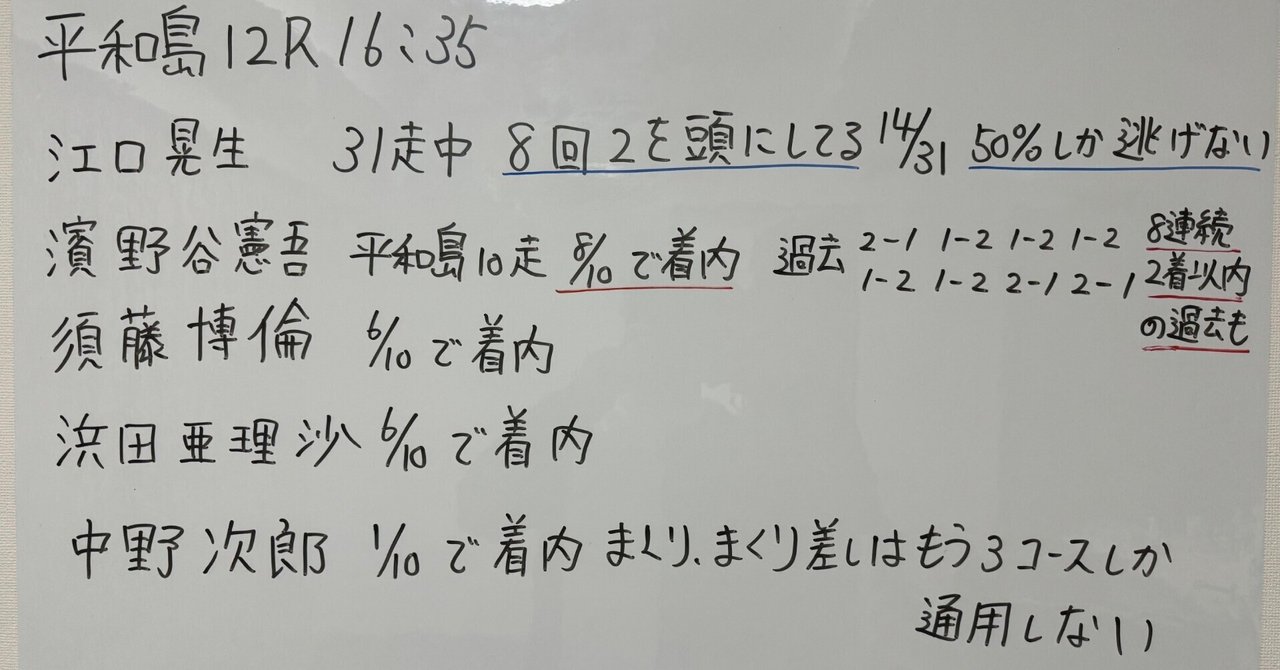 平和島12R 16:35
江口晃生 31走中 8回2を頭にしてる 14/31 50%しか逃げない
濱野谷憲吾 平和島10走 8/10で着内 過去 2-1 1-2 1-2 1-2 8連続
1-2 1-2 2-1 2-1 2着以内
の過去も
須藤博倫 6/10で着内
浜田亜理沙 6/10で着内
中野次郎 1/10で着内 まくり、まくり差しはもう3コースしか
通用しない